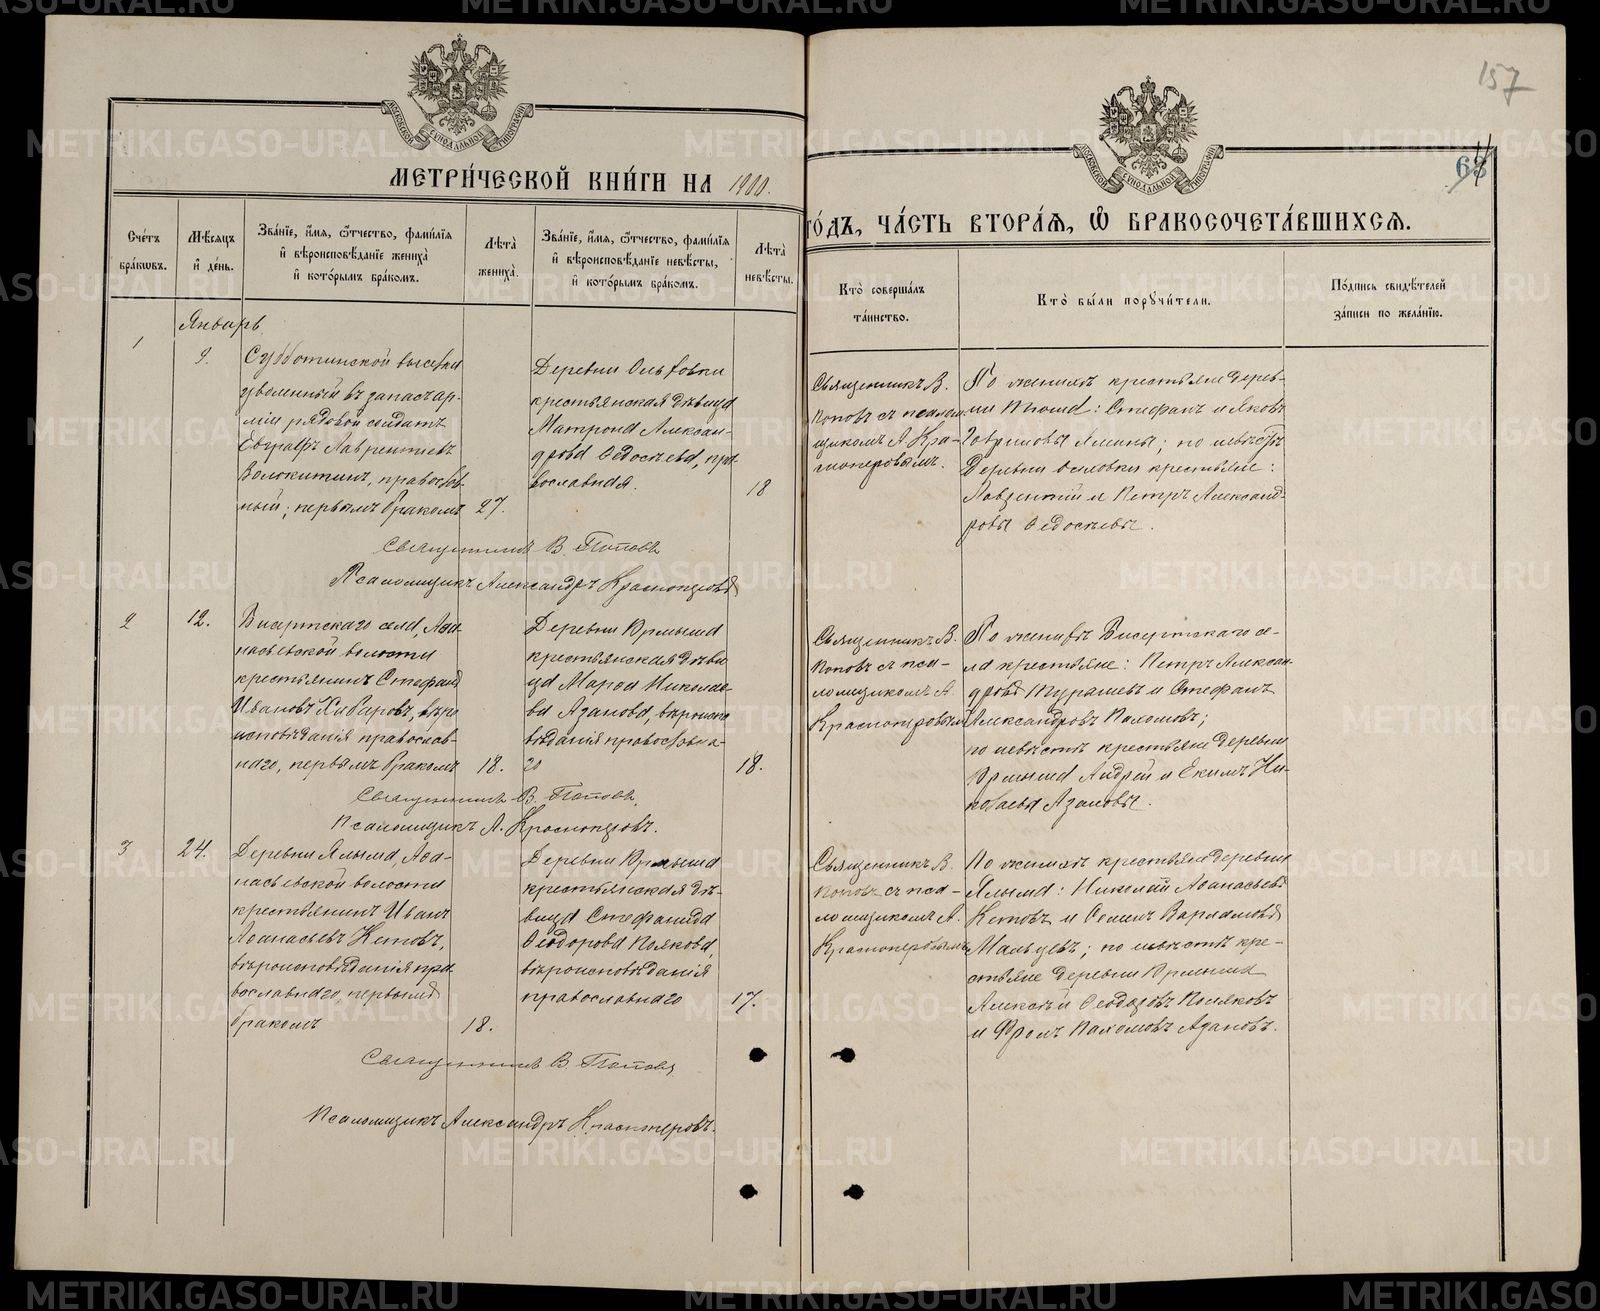 157
68
МЕТРИ́ЧЕСКОЙ КНИ́ГИ НА 1900.
ГО́ДЪ, ЧА́СТЬ ВТОРА́Я, Ѽ БРАКОСОЧЕТА́ВШИХСЯ.
Сче́тъ бра́кѡвъ.
Мѣ́сяцъ и҆ де́нь.
Зва́нїе, и҆́мя, ѻ҆́тчество, фами́лїя и҆ вѣроисповѣ́данїе жениха̀ и҆ кото́рымъ бра́комъ.
Лѣта̀ жениха̀.
Зва́нїе, и҆́мя, ѻ҆́тчество, фами́лїя и҆ вѣроисповѣ́данїе невѣ́сты, и҆ кото́рымъ бра́комъ.
Лѣта̀ невѣ́сты.
Кто̀ соверша́лъ та́инство.
Кто̀ бы́ли поручи́тели.
По́дпись свидѣ́телей за́писи по жела́нїю.
Январь
1
9.
Субботинской выселки
уволенный въ запасъ ар-
міи рядовой солдатъ
Евграфъ Лаврентьевъ
Волокитинъ, православ-
ный; первымъ бракомъ
27.
Деревни Ольховки
крестьянская дѣвица
Матрона Алексан-
дрова Ѳедосѣева, пра-
вославная.
18
Священникъ В.
Поповъ съ псалом-
щикомъ А. Кра-
сноперовымъ.
По женихѣ крестьяне дерев-
ни
Стефанъ и Яковъ
Гавриловы
по невѣстѣ
Деревни Ольховки крестьяне:
Лаврентій и Петръ Александ-
ровы Ѳедосѣевы.
Священникъ В. Поповъ
Псаломщикъ Александръ Красноперовъ
2
12.
Бисертскаго села, Аѳа-
насьевской волости
крестьянинъ Стефанъ
Ивановъ Хабаровъ, вѣро
исповѣданія православ-
наго, первымъ бракомъ
18.
Деревни Урмыша
крестьянская дѣви
ца Марѳа Николае-
ва Азанова, вѣроиспо
вѣданія православна-
го
18.
Священникъ В.
Поповъ съ пса-
ломщикомъ А.
Красноперовымъ
По женихѣ Бисертскаго се-
ла крестьяне: Петръ Алексан-
дровъ Турашевъ и Стефанъ
Александровъ Пахомовъ;
по невѣстѣ крестьяне деревни
Урмыша Андрей и Екимъ Ни-
колаевы Азановы.
Священникъ В. Поповъ.
Псаломщикъ А. Красноперовъ.
3
24.
Деревни Ялыма, Аѳа-
насьевской волости
крестьянинъ Иванъ
Аѳанасьевъ Кетовъ,
вѣроисповѣданія пра-
вославнаго, первымъ
бракомъ
18.
Деревни Урмыша
крестьянская дѣ-
вица Стефанида
Ѳеодорова Полякова,
вѣроисповѣданія
православнаго
17.
Священникъ В.
Поповъ съ пса-
ломщикомъ А.
Красноперовымъ
По женихѣ крестьяне деревни
Ялыма: Николай Аѳанасьевъ
Кетовъ и Семенъ Варламовъ
Мальцевъ; по невѣстѣ кре-
стьяне деревни Урмыша
Алексѣй Ѳеодоровъ Поляковъ
и Фролъ Пахомовъ Азановъ.
Священникъ В. Поповъ
Псаломщикъ Александръ Красноперовъ.
METRIKI.GASO-URAL.RU